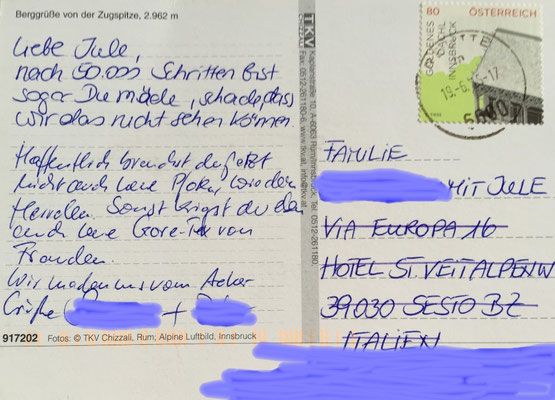 Berggrüße von der Zugspitze, 2.962 m
Liebe Jule,
nach 50.000 Schritten bist
sogar Du müde, schade, dass
wir das nicht sehen können
Hoffentlich brauchst du jetzt
nicht auch neue Pfoten, wie dein
Herrchen. Sonst kriegst du dann
auch neue Gore-Tex von
Frauchen.
Wir machen uns vom Acker
Grüße
+
917202 Fotos: © TKV Chizzali, Rum; Alpine Luftbild, Innsbruck
TKV
CHIZZALI
Kaplanstraße 10, A-6063 Rum/Innsbruck, Tel. 0512-261180
Fax: 0512-261180-6, www.tkv.at, info@tkv.at
80
ÖSTERREICH
GOLDENES
DACHL
INNSBRUCK
FAMILIE
MIT JULE
VIA EUROPA 16
HOTEL ST. VEIT ALPENW
39030 SESTO BZ
ITALIEN